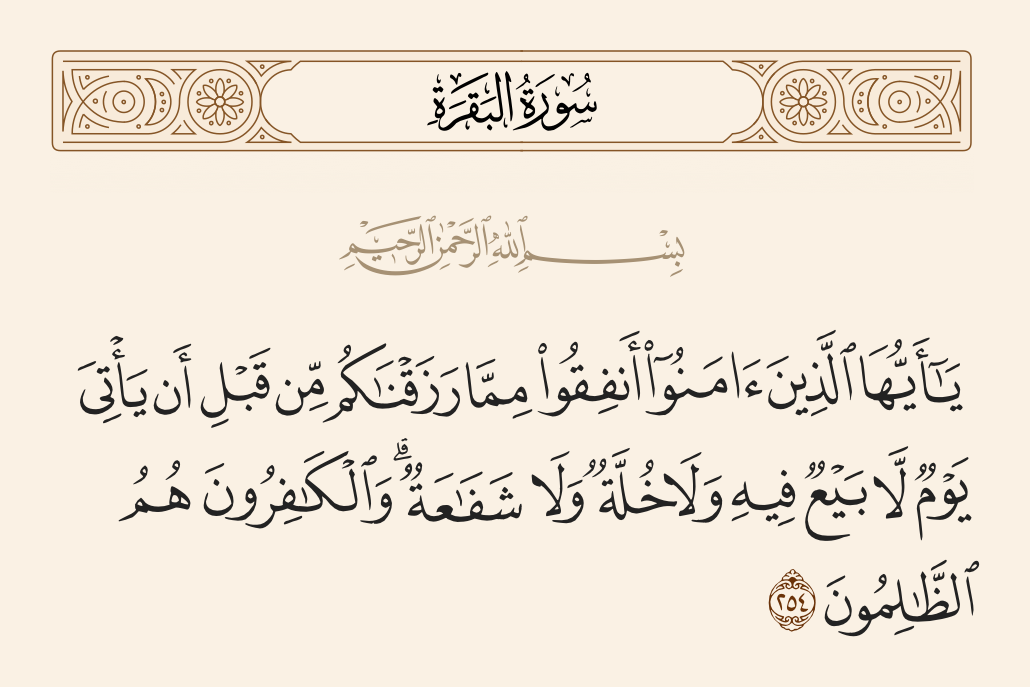 سُورَةُ البَقَرَةِ
بِسْمِ ٱللَّهِ ٱلرَّحْمَٰنِ ٱلرَّحِيمِ
يَـٰٓأَيُّهَا ٱلَّذِينَ ءَامَنُوٓا۟ أَنفِقُوا۟ مِمَّا رَزَقْنَـٰكُم مِّن قَبْلِ أَن يَأْتِىَ
يَوْمٌ لَّا بَيْعٌ فِيهِ وَلَا خُلَّةٌ وَلَا شَفَـٰعَةٌ ۗ وَٱلْكَـٰفِرُونَ هُمُ
ٱلظَّـٰلِمُونَ ٢٥٤